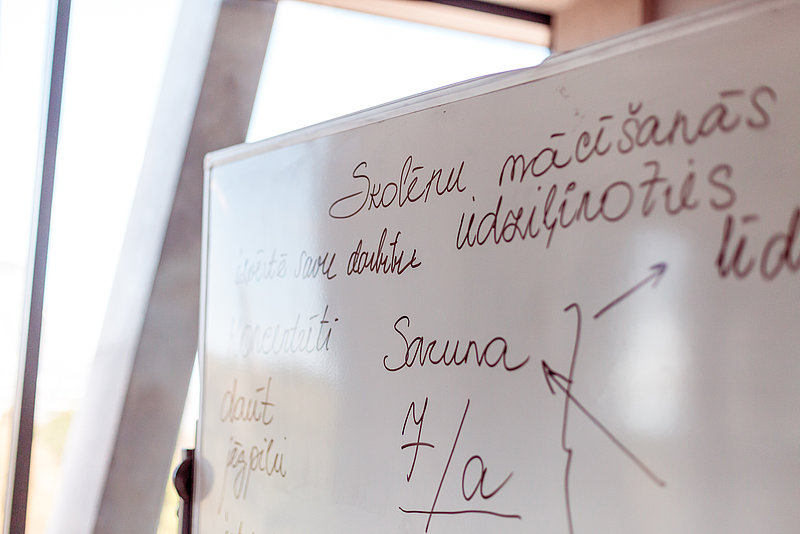 Skolēnu mācīšanās
līdziļīnoties
izvērtē savu darbību
līd
koncentrēti
Saruna
daut
jēgpilni
7/a